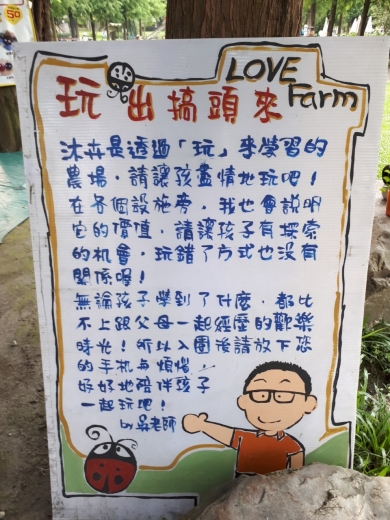 50
LOVE
Farm
玩出搞頭來
沐卉是透過「玩」來學習的
農場，請讓孩盡情地玩吧！
在各個設施旁，我也會說明
它的價值，請讓孩子有探索
的機會，玩錯了方式也沒有
關係喔！
無論孩子學到了什麼，都比
不上跟父母一起經歷的歡樂
時光！所以入園後請放下您
的手机与煩惱，
好好地陪伴孩子
一起玩吧！
by吳老師